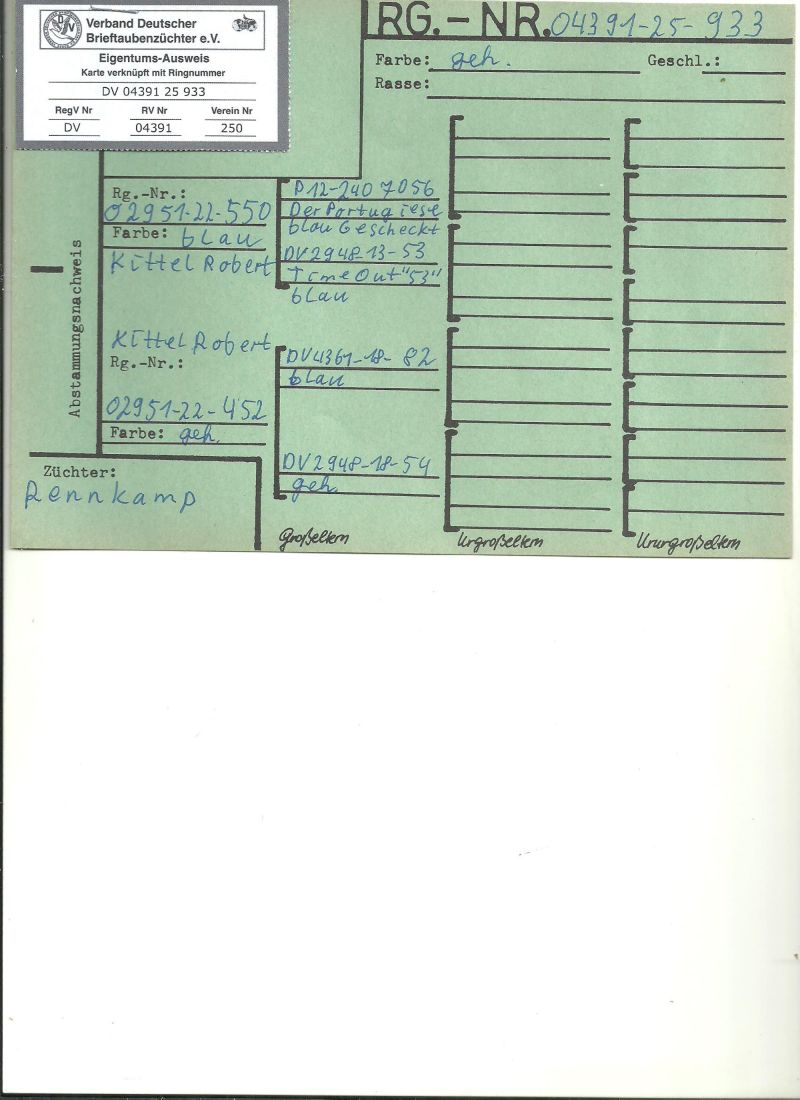 Verband Deutscher
Brieftaubenzüchter e.V.
Eigentums-Ausweis
Karte verknüpft mit Ringnummer
DV 04391 25 933
RegV Nr RV Nr Verein Nr
DV 04391 250
RG.-NR. 04391-25-933
Farbe: geh. Geschl.:
Rasse:
Abstammungsnachweis
Rg.-Nr.:
02951-22-550
Farbe: blau
Kittel Robert
Kittel Robert
Rg.-Nr.:
02951-22-452
Farbe: geh.
Züchter:
Rennkamp
P12-240 7056
Der Portugiese
blau Gescheckt
DV2948-13-53
Time Out "53"
blau
DV4361-18-82
blau
DV2948-18-54
geh.
Großeltern
Urgroßeltern
Ururgroßeltern